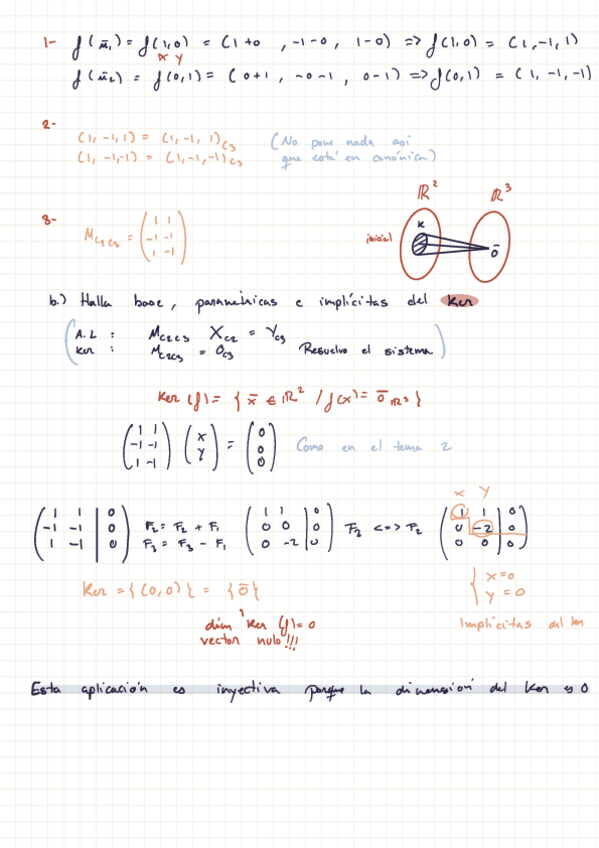 1- f(ū₁) = f(1,0) = (1+0 , -1-0, 1-0) => f(1,0) = (1,-1,1)
x y
f(ū₂) = f(0,1) = (0+1 , -0-1 , 0-1) => f(0,1) = (1, -1, -1)
2-
(1, -1, 1) = (1, -1, 1)C3 (No pone nada así
(1, -1, -1) = (1, -1, -1)C3 que está en canónica)
ℝ² ℝ³
3- M C2C3 = (1 1
-1 -1
1 -1)
inicial K ō
b.) Halla base, paramétricas e implícitas del Ker
(A.L : M C2C3 X C2 = Y C3
Ker : M C2C3 = 0 C3 Resuelvo el sistema)
Ker (f) = { x̄ ∈ ℝ² / f(x) = ō ℝ³ }
(1 1
-1 -1
1 -1) (x
y) = (0
0
0) Como en el tema 2
x y
(1 1 | 0
-1 -1 | 0
1 -1 | 0) F₂ = F₂ + F₁
F₃ = F₃ - F₁ (1 1 | 0
0 0 | 0
0 -2 | 0) F₃ <=> F₂ (1 1 | 0
0 -2 | 0
0 0 | 0)
Ker = { (0,0) } = { ō }
{ x = 0
y = 0
dim Ker (f) = 0
vector nulo!!!
Implícitas del Ker
Esta aplicación es inyectiva porque la dimensión del Ker es 0